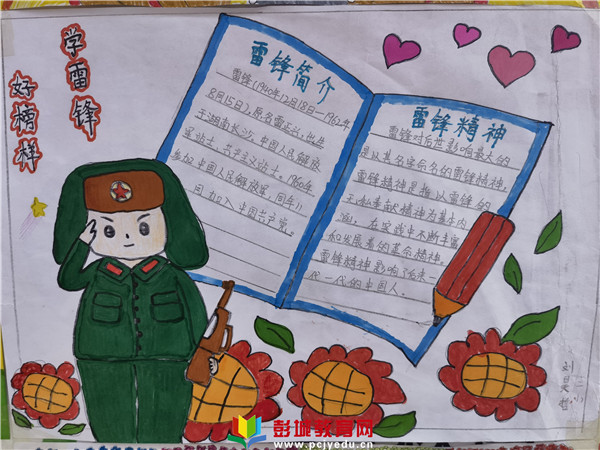 学雷锋
好榜样
雷锋简介
雷锋(1940年12月18日—1962年
8月15日),原名雷正兴,出生
于湖南长沙,中国人民解放
军战士、共产主义战士。1960年
参加中国人民解放军,同年11
月加入中国共产党。
雷锋精神
雷锋对后世影响最大的
是以其名字命名的雷锋精神。
雷锋精神是指以雷锋的
无私奉献精神为基本内
涵,在实践中不断丰富
和发展着的革命精神。
雷锋精神影响了一代
代一代的中国人。
彭城教育网
www.pcjyedu.cn